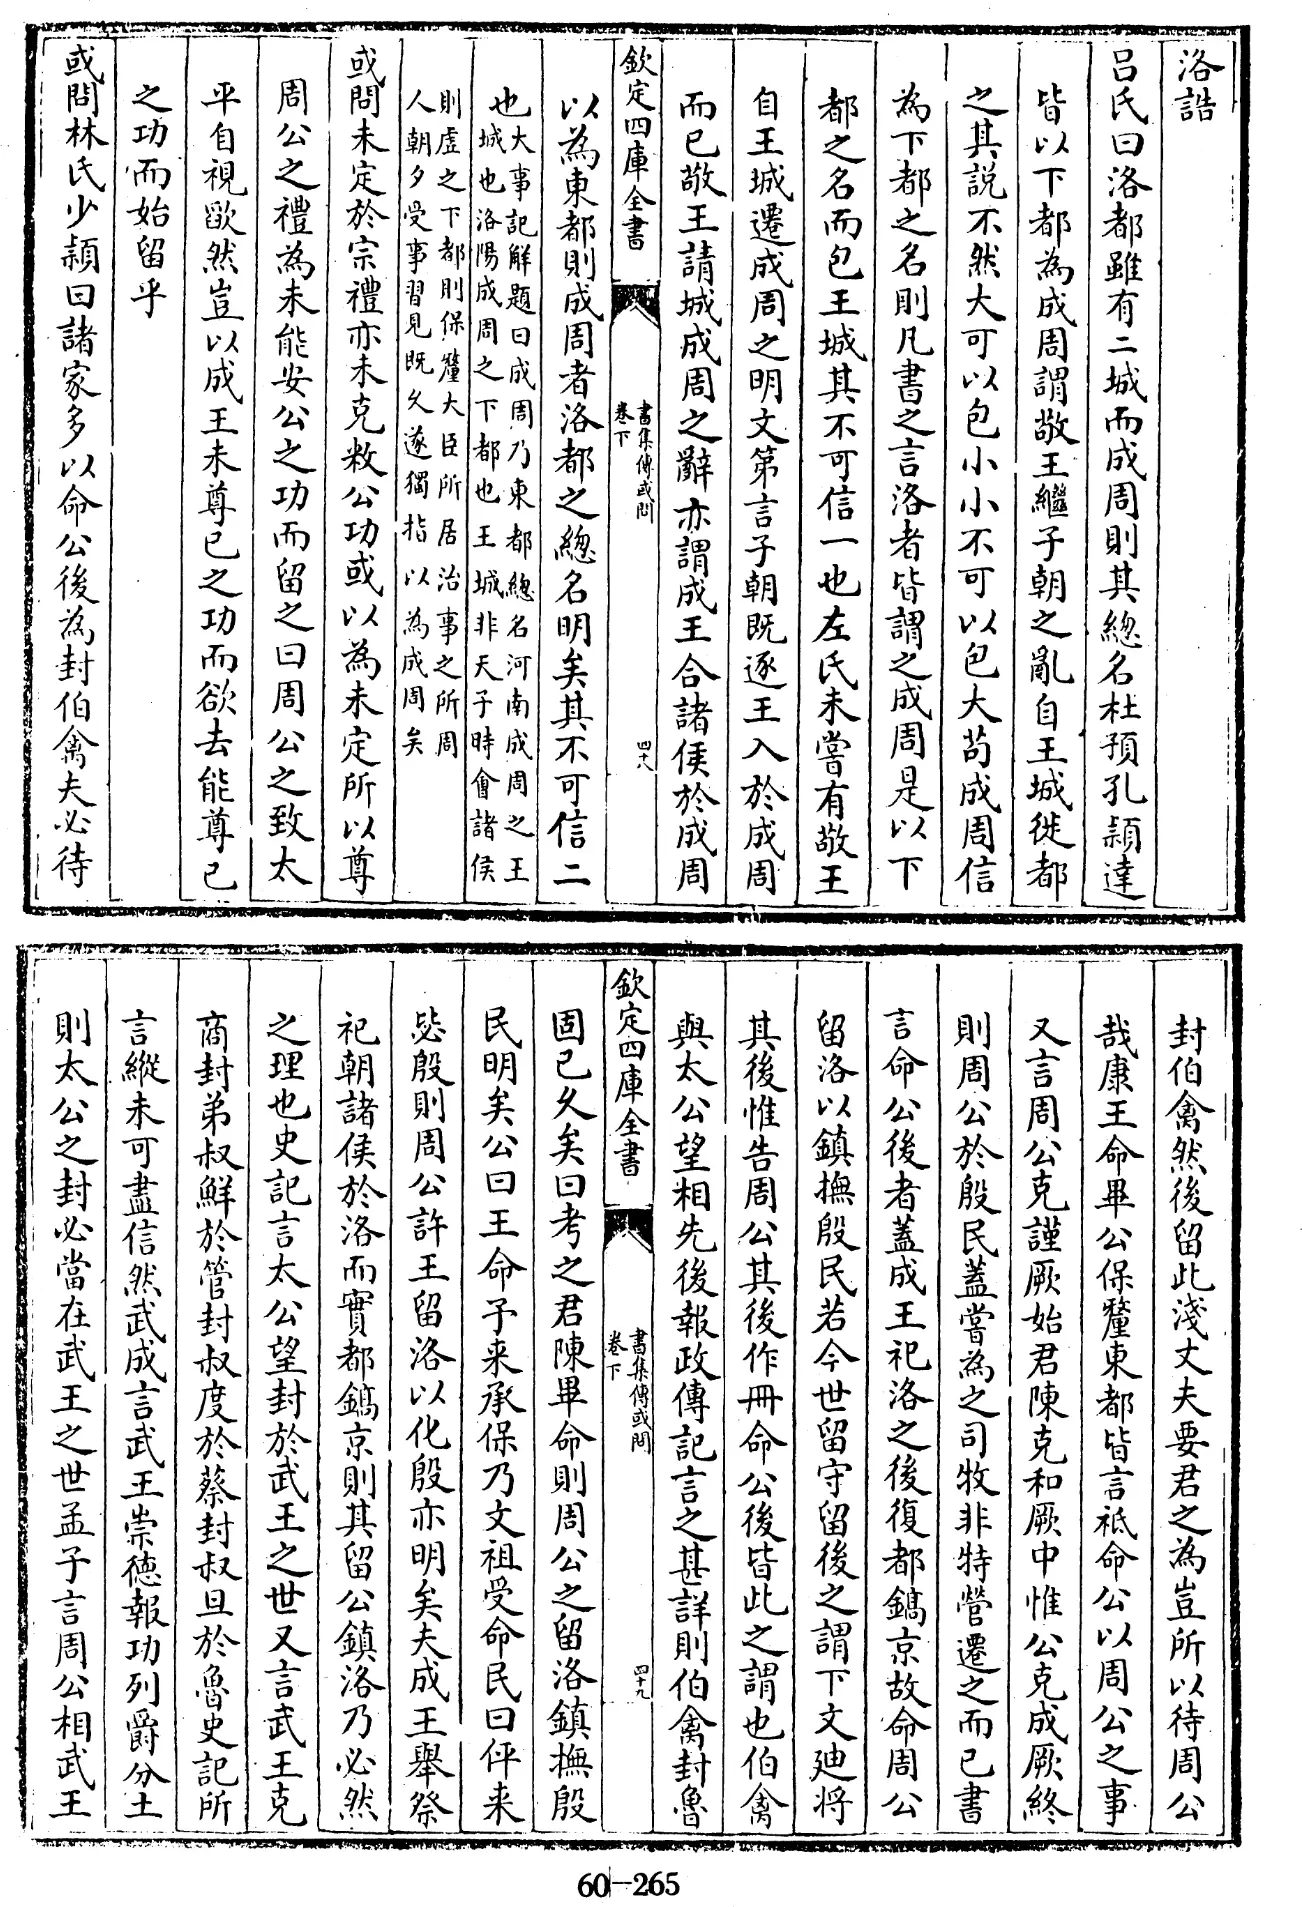 洛誥
吕氏曰洛都雖有二城而成周則其總名杜預孔穎達
皆以下都為成周謂敬王繼子朝之亂自王城徙都
之其說不然大可以包小小不可以包大苟成周信
為下都之名則凡書之言洛者皆謂之成周是以下
都之名而包王城其不可信一也左氏未嘗有敬王
自王城遷成周之明文第言子朝既逐王入於成周
而已敬王請城成周之辭亦謂成王合諸侯於成周
欽定四庫全書
書集傳或問
卷下
四十八
以為東都則成周者洛都之總名明矣其不可信二
也
大事記解題曰成周乃東都總名河南成周之王
城也洛陽成周之下都也王城非天子時會諸侯
則虚之下都則保釐大臣所居治事之所周
人朝夕受事習見既久遂獨指以為成周矣
或問未定於宗禮亦未克敉公功或以為未定所以尊
周公之禮為未能安公之功而留之曰周公之致太
平自視歐然豈以成王未尊已之功而欲去能尊已
之功而始留乎
或問林氏少穎曰諸家多以命公後為封伯禽夫必待
封伯禽然後留此淺丈夫要君之為豈所以待周公
哉康王命畢公保釐東都皆言祗命公以周公之事
又言周公克謹厥始君陳克和厥中惟公克成厥終
則周公於殷民蓋嘗為之司牧非特營遷之而已書
言命公後者蓋成王祀洛之後復都鎬京故命周公
留洛以鎮撫殷民若今世留守留後之謂下文迪將
其後惟告周公其後作冊命公後皆此之謂也伯禽
與太公望相先後報政傳記言之甚詳則伯禽封魯
欽定四庫全書
書集傳或問
卷下
四十九
固已久矣曰考之君陳畢命則周公之留洛鎮撫殷
民明矣公曰王命予来承保乃文祖受命民曰伻来
毖殷則周公許王留洛以化殷亦明矣夫成王舉祭
祀朝諸侯於洛而實都鎬京則其留公鎮洛乃必然
之理也史記言太公望封於武王之世又言武王克
商封弟叔鮮於管封叔度於蔡封叔旦於魯史記所
言縱未可盡信然武成言武王崇德報功列爵分土
則太公之封必當在武王之世孟子言周公相武王
60-265